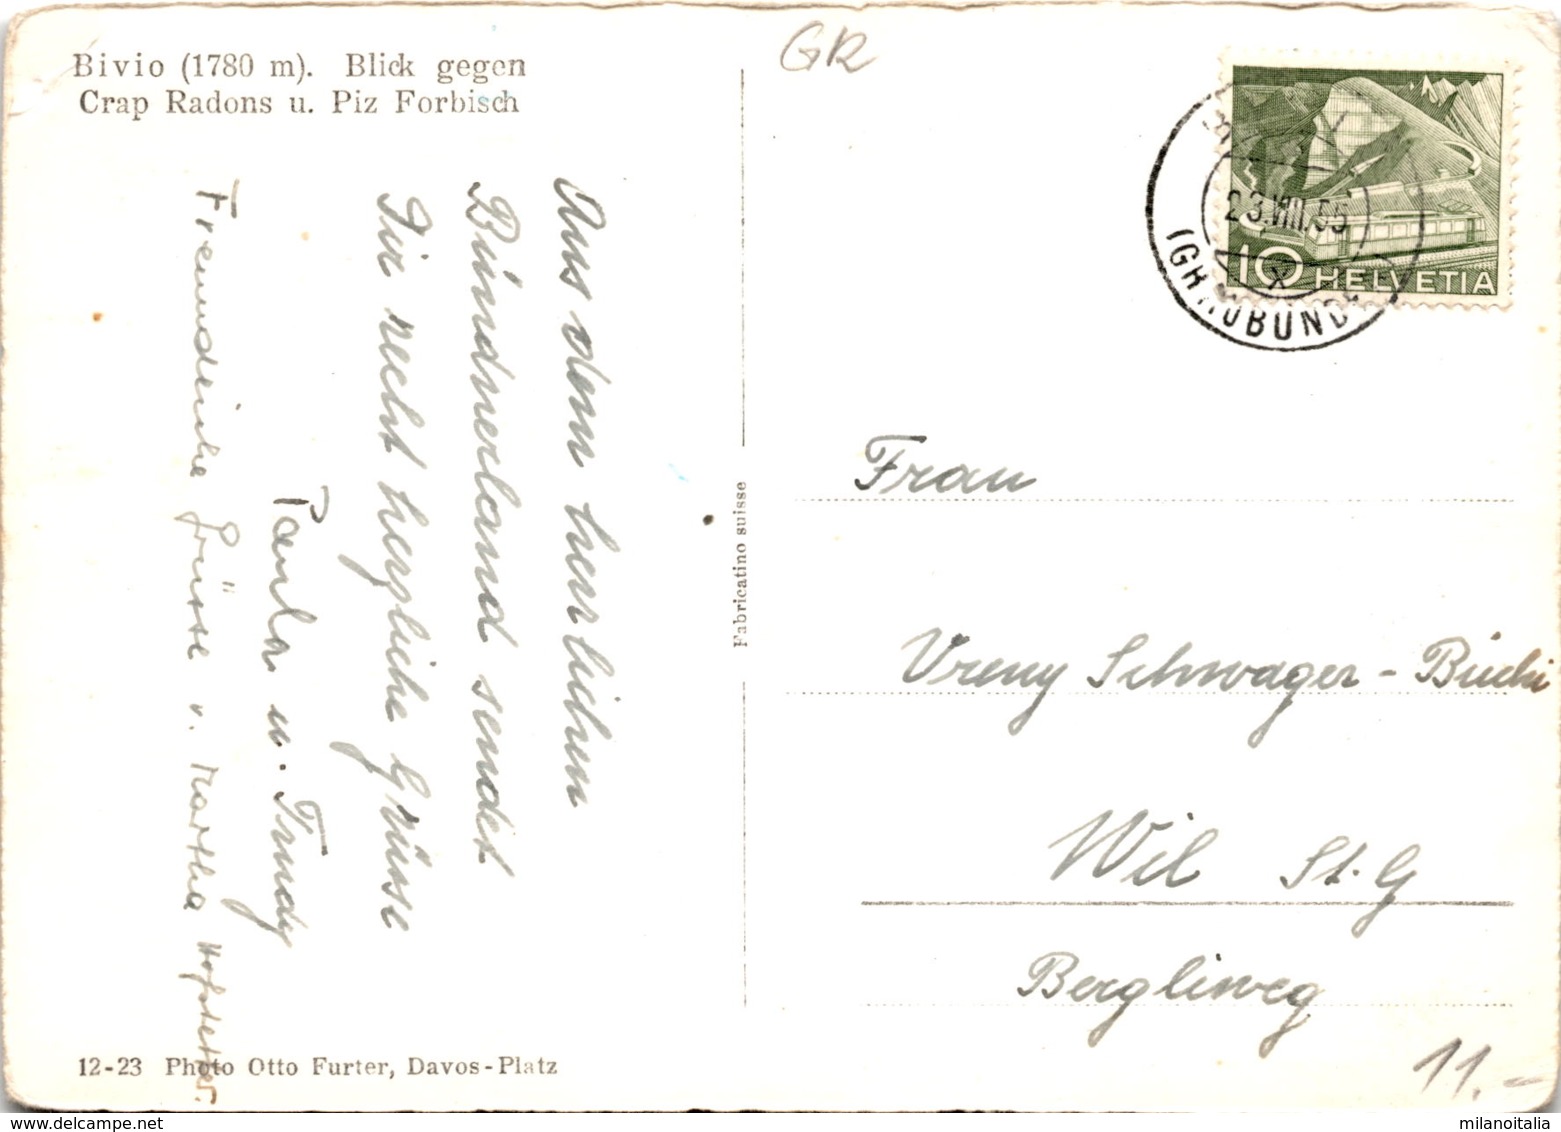 Bivio (1780 m). Blick gegen
Crap Radons u. Piz Forbisch
GR
23.VIII.55
10 HELVETIA
Aus dem herrlichen
Bündnerland sendet
Dir recht herzliche Grüsse
Paula u. Trudy
Freundliche Grüsse v. Martha Hofstetter.
Fabricatino suisse
Frau
Vreny Schwager - Büchi
Wil St. G
Bergliweg
12-23 Photo Otto Furter, Davos-Platz
11.-
www.delcampe.net
milanoitalia